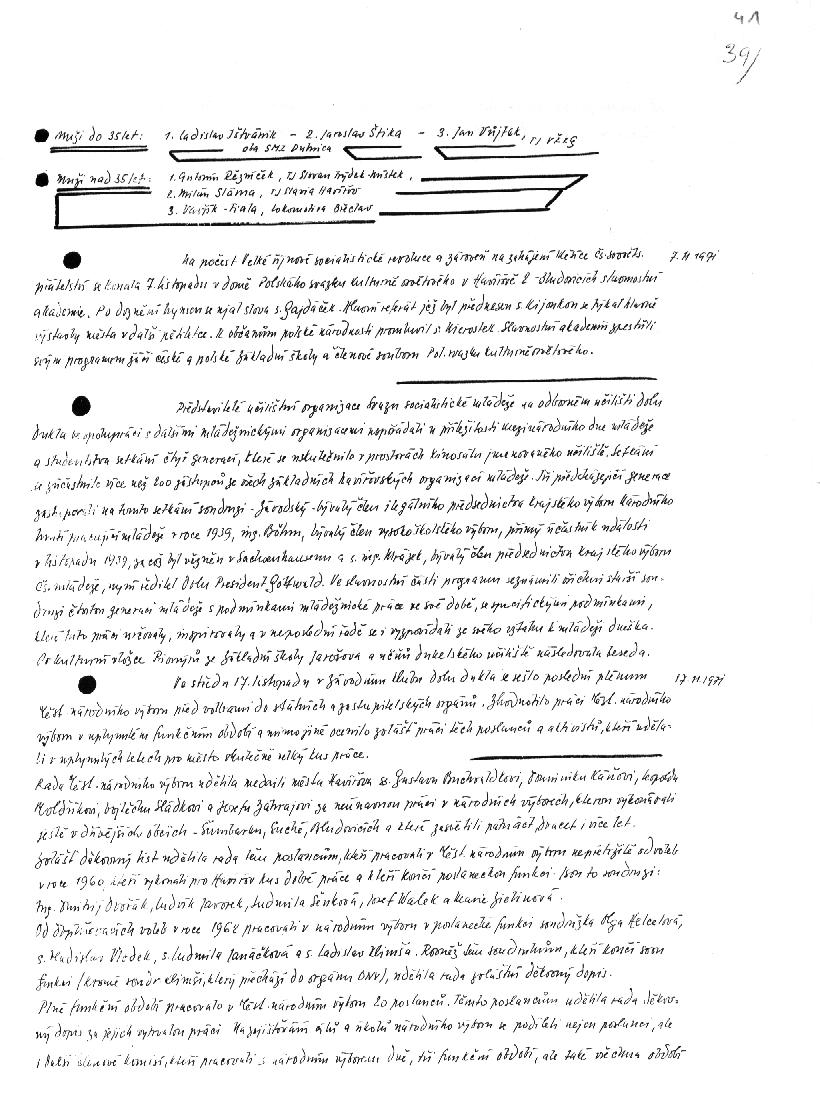 41
39/
Muži do 35 let: 1. Ladislav Ištvánik - 2. Jaroslav Štika - 3. Jan Vojták, TJ VŽKG
oba SMZ Dubnica
Muži nad 35 let: 1. Antonín Řezníček, TJ Slovan Frýdek-Místek,
2. Milan Sláma, TJ Slavia Havířov
3. Fiala, Lokomotiva Břeclav
Na počest Velké říjnové socialistické revoluce a zároveň na zahájení Měsíce čs.-sověts. 7.11.1971
přátelství se konala 7. listopadu v domě Polského svazku kulturně osvětového v Havířově 2 - Bludovicích slavnostní
akademie. Po doznění hymen se ujal slova s. Gajdáček. Hlavní referát jež byl přednesen s. Kijonkou se týkal hlavně
výstavby města v další pětiletce. K občanům polské národnosti promluvil s. Kierostek. Slavnostní akademii zpestřili
svým programem žáci české a polské základní školy a členové souboru Pol. svazku kulturně osvětového.
Představitelé učilištní organizace Svazu socialistické mládeže na odborném učilišti dolu
Dukla ve spolupráci s dalšími mládežnickými organizacemi uspořádali u příležitosti mezinárodního dne mládeže
a studentstva setkání čtyř generací, které se uskutečnilo v prostorách kinosálu jmenovaného učiliště. Setkání
se zúčastnilo více než 200 zástupců ze všech základních havířovských organizací mládeže. Tři předcházející generace
zastupovali na tomto setkání soudruzi - Závodský - bývalý člen ilegálního předsednictva krajského výboru Národního
hnutí pracující mládeže v roce 1939, ing. Böhm, bývalý člen vysokoškolského výboru, přímý účastník událostí
v listopadu 1939, za což byl vězněn v Sachsenhausenu a s. ing. Mrázek, bývalý člen předsednictva krajského výboru
Čs. mládeže, nyní ředitel Dolu President Gottwald. Ve slavnostní části programu seznámili všichni starší sou-
druzi čtvrtou generaci mládeže s podmínkami mládežnické práce ve své době, se specifickými podmínkami,
které tuto práci určovaly, inspirovaly a v neposlední řadě se i vyzpovídali ze svého vztahu k mládeži dneška.
Po kulturní vložce Pionýrů ze základní školy Jarošova a učňů dukelského učiliště následovala beseda.
Ve středu 17. listopadu v Závodním klubu dolu Dukla se sešlo poslední plenum 17.11.1971
Měst. národního výboru před volbami do státních a zastupitelských orgánů. Zhodnotilo práci Měst. národního
výboru v uplynulém funkčním období a mimo jiné ocenilo zvlášť práci těch poslanců a aktivistů, kteří uděla-
li v uplynulých letech pro město skutečně velký kus práce.
Rada Měst. národního výboru udělila medaili města Havířova ss. Gustavu Buchwaldkovi, Dominiku Káňovi, Leopoldu
Moldříkovi, Vojtěchu Sládkovi a Josefu Zahrajovi za neúnavnou práci v národních výborech, kterou vykonávali
ještě v dřívějších obcích - Šumbarku, Suché, Bludovicích a které zasvětili patnáct, dvacet i více let.
Zvlášť děkovný list udělila rada těm poslancům, kteří pracovali v Měst. národním výboru nepřetržitě od voleb
v roce 1960, kteří vykonali pro Havířov kus dobré práce a kteří končí poslaneckou funkci. Jsou to soudruzi:
Ing. Dmitrij Dvořák, Ludvík Javorek, Ludmila Ševková, Josef Walek a Marie Zielinová.
Od doplňovacích voleb v roce 1962 pracovali v národním výboru v poslanecké funkci soudružka Olga Helcelová,
s. Vladislav Vlodek, s. Ludmila Janáčková a s. Ladislav Klimša. Rovněž těm soudruhům, kteří končí svou
funkci /kromě soudr. Klimši, který přechází do orgánu ONV/, udělila rada zvláštní děkovný dopis.
Plné funkční období pracovalo v Měst. národním výboru 20 poslanců. Těmto poslancům udělila rada děkov-
ný dopis za jejich vytrvalou práci. Na zajišťování cílů a úkolů národního výboru se podíleli nejen poslanci, ale
i další členové komisí, kteří pracovali s národním výborem dvě, tři funkční období, ale také všechna období